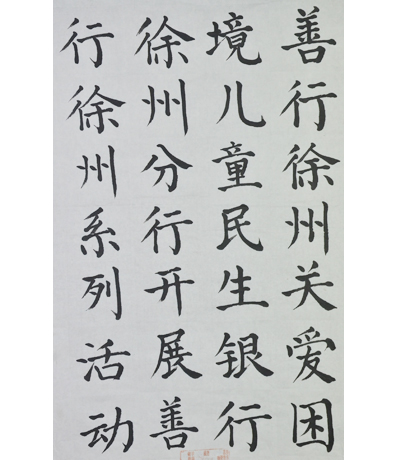 善行徐州关爱困
境儿童民生银行
徐州分行开展善
行徐州系列活动